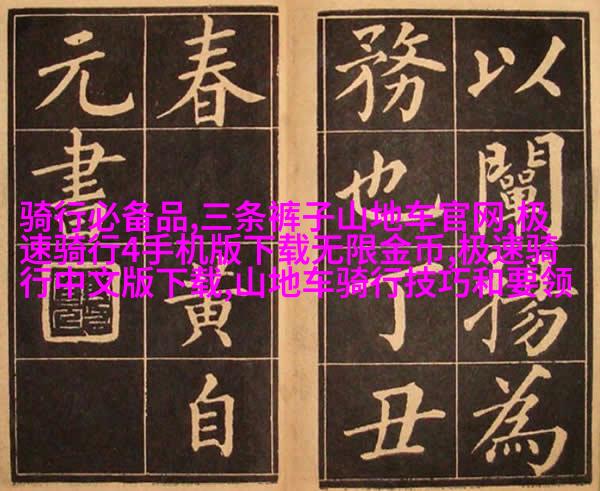 以闡揚為
務也丁丑
春黃自
元書
骑行必备品,三条裤子山地车官网,极
速骑行4手机版下载无限金币,极速骑
行中文版下载,山地车骑行技巧和要领